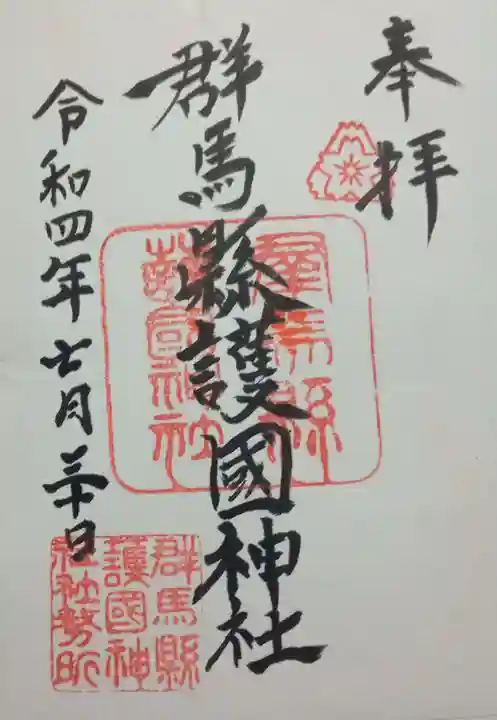 奉拝
群馬縣護國神社
群馬縣
護國神社
令和四年七月三十日
群馬縣
護國神
社社務所